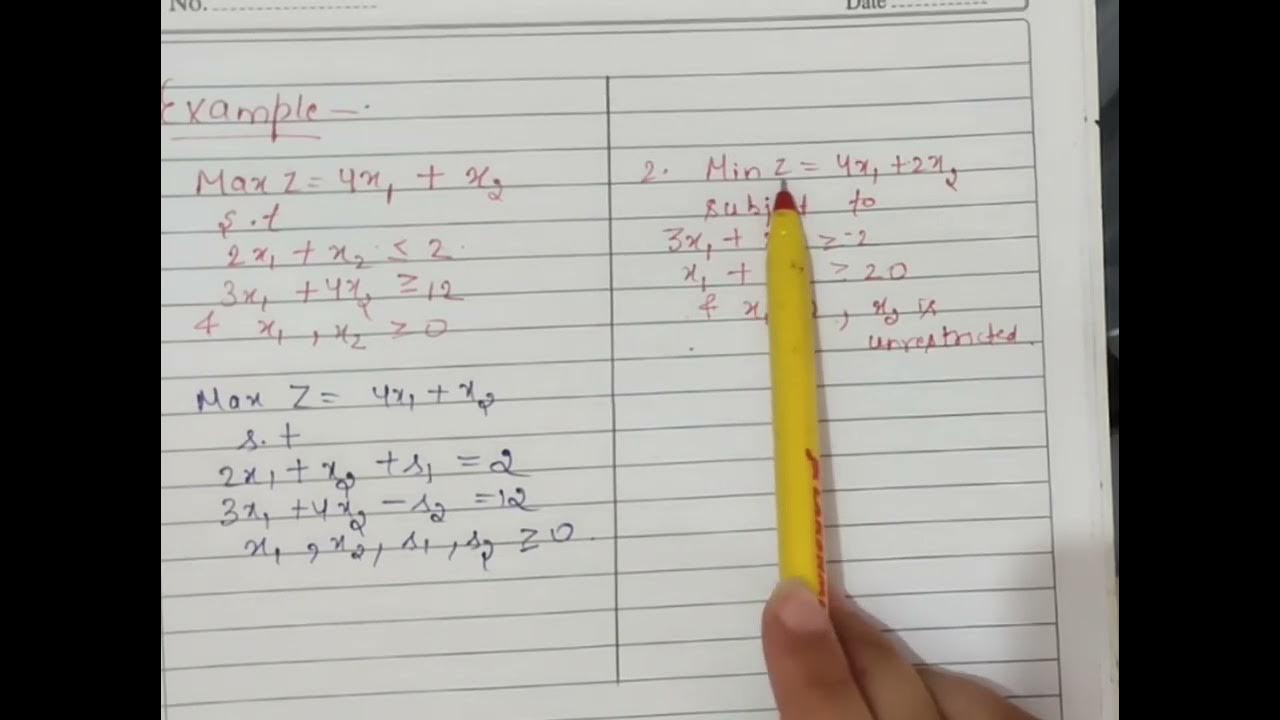 No.
Date
Example –.
Max Z = 4x₁ + x₂
s.t
2x₁ + x₂ ≤ 2
3x₁ + 4x₂ ≥ 12
& x₁, x₂ ≥ 0
Max Z = 4x₁ + x₂
s.t
2x₁ + x₂ + s₁ = 2
3x₁ + 4x₂ - s₂ = 12
x₁, x₂, s₁, s₂ ≥ 0
2. Min Z = 4x₁ + 2x₂
subject to
3x₁ + ≥ -2
x₁ + ≥ 20
& x₁ , x₂ is
unrestricted.